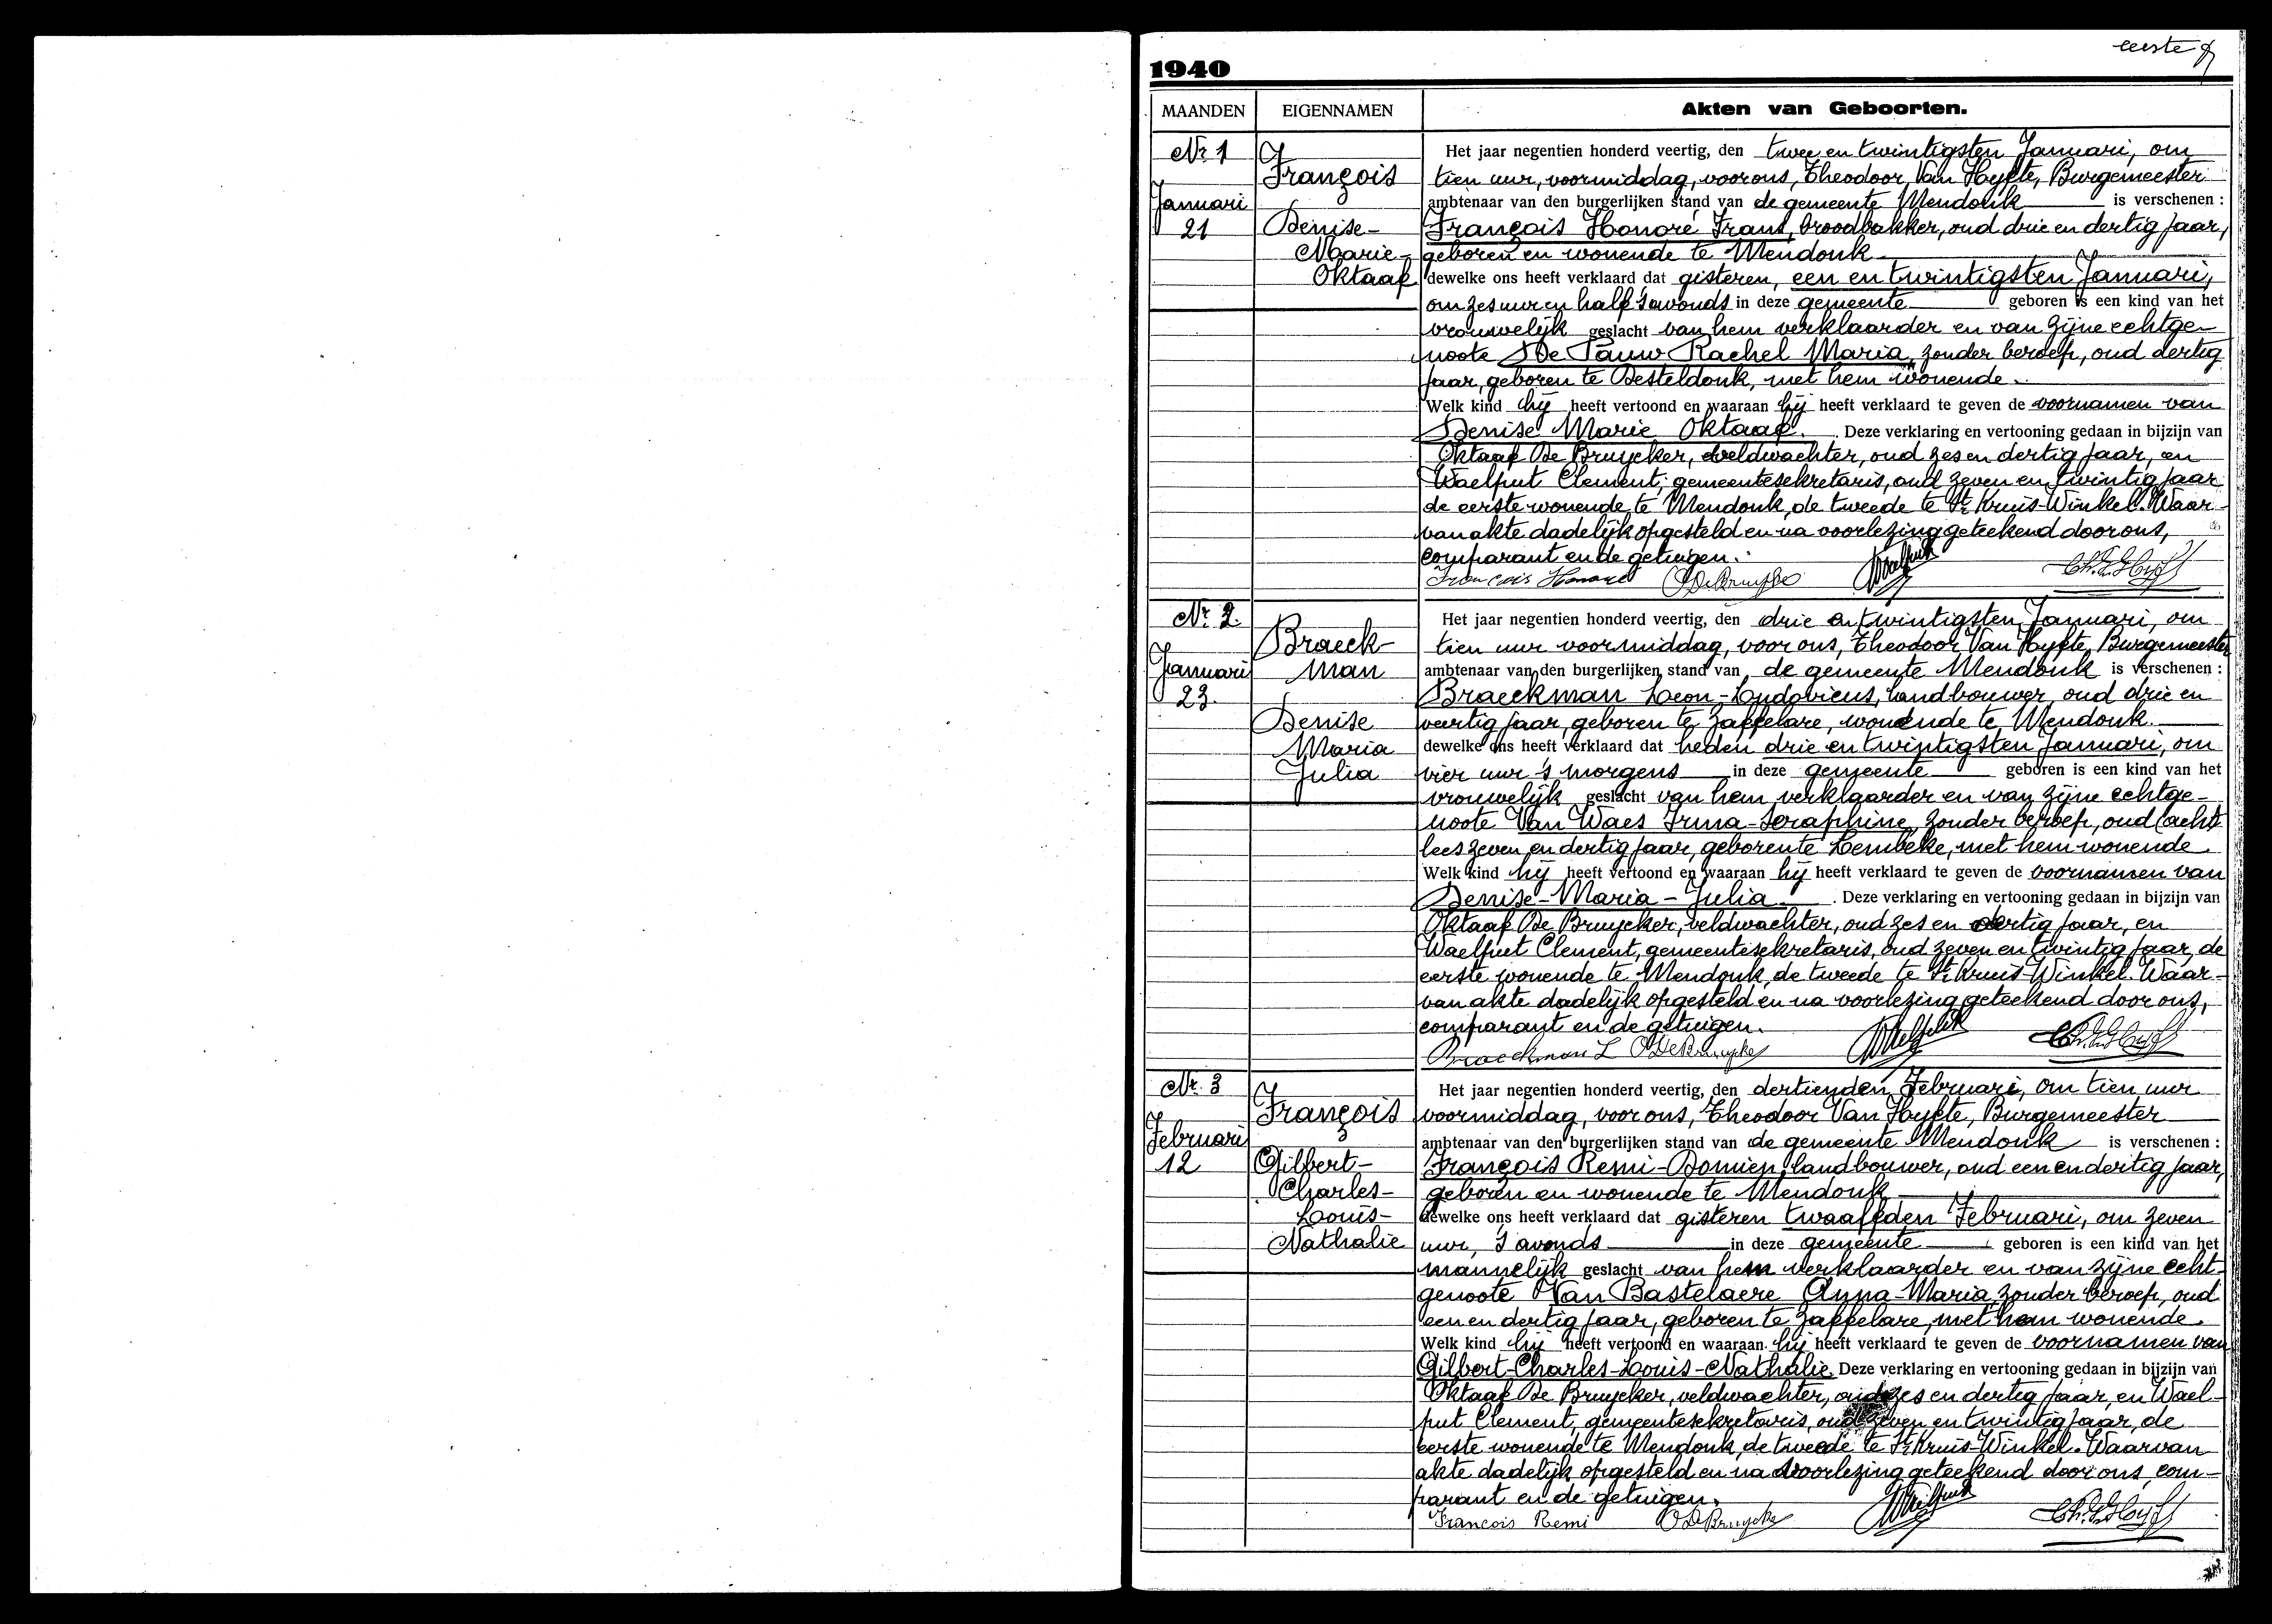 eerste
1940
MAANDEN EIGENNAMEN Akten van Geboorten.
Nr 1
Januari
21
François
Denise-
Marie-
Oktaaf
Het jaar negentien honderd veertig, den twee en twintigsten Januari, om
tien uur, voormiddag, voor ons, Theodoor Van Hyfte, Burgemeester
ambtenaar van den burgerlijken stand van de gemeente Mendonk is verschenen :
François Honoré Frans, broodbakker, oud drie en dertig jaar,
geboren en wonende te Mendonk
dewelke ons heeft verklaard dat gisteren, een en twintigsten Januari,
om zes uur en half 's avonds in deze gemeente geboren is een kind van het
vrouwelijk geslacht van hem verklaarder en van zijne echtge-
noote De Pauw Rachel Maria, zonder beroep, oud dertig
jaar, geboren te Desteldonk, met hem wonende.
Welk kind hij heeft vertoond en waaraan hij heeft verklaard te geven de voornamen van
Denise Marie Oktaaf. Deze verklaring en vertooning gedaan in bijzijn van
Oktaaf De Bruycker, veldwachter, oud zes en dertig jaar, en
Waelput Clement, gemeentesekretaris, oud zeven en twintig jaar
de eerste wonende te Mendonk, de tweede te St Kruis-Winkel. Waar-
van akte dadelijk opgesteld en na voorlezing geteekend door ons,
comparant en de getuigen.
François Honoré O De Bruycker Waelput Th. V. Hyfte
Nr. 2.
Januari
23.
Braeck-
man
Denise
Maria
Julia
Het jaar negentien honderd veertig, den drie en twintigsten Januari, om
tien uur voormiddag, voor ons, Theodoor Van Hyfte, Burgemeester
ambtenaar van den burgerlijken stand van de gemeente Mendonk is verschenen :
Braeckman Leon-Ludovicus, landbouwer, oud drie en
veertig jaar, geboren te Zaffelare, wonende te Mendonk.
dewelke ons heeft verklaard dat heden drie en twintigsten Januari, om
vier uur 's morgens in deze gemeente geboren is een kind van het
vrouwelijk geslacht van hem verklaarder en van zijne echtge-
noote Van Waes Irma-Seraphine, zonder beroep, oud (acht)
lees zeven en dertig jaar, geboren te Lembeke, met hem wonende.
Welk kind hij heeft vertoond en waaraan hij heeft verklaard te geven de voornamen van
Denise-Maria-Julia. Deze verklaring en vertooning gedaan in bijzijn van
Oktaaf De Bruycker, veldwachter, oud zes en dertig jaar, en
Waelput Clement, gemeentesekretaris, oud zeven en twintig jaar, de
eerste wonende te Mendonk, de tweede te St Kruis-Winkel. Waar-
van akte dadelijk opgesteld en na voorlezing geteekend door ons,
comparant en de getuigen.
Braeckman L O De Bruycker Waelput Th. V. Hyfte
Nr. 3
Februari
12
François
Gilbert-
Charles-
Louis-
Nathalie
Het jaar negentien honderd veertig, den dertienden Februari, om tien uur
voormiddag, voor ons, Theodoor Van Hyfte, Burgemeester
ambtenaar van den burgerlijken stand van de gemeente Mendonk is verschenen :
François Remi-Domien, landbouwer, oud een en dertig jaar,
geboren en wonende te Mendonk
dewelke ons heeft verklaard dat gisteren twaalfden Februari, om zeven
uur, 's avonds in deze gemeente geboren is een kind van het
mannelijk geslacht van hem verklaarder en van zijne echt-
genoote Van Bastelaere Anna-Maria, zonder beroep, oud
een en dertig jaar, geboren te Zaffelare, met hem wonende.
Welk kind hij heeft vertoond en waaraan hij heeft verklaard te geven de voornamen van
Gilbert-Charles-Louis-Nathalie. Deze verklaring en vertooning gedaan in bijzijn van
Oktaaf De Bruycker, veldwachter, oud zes en dertig jaar, en Wael-
put Clement, gemeentesekretaris, oud zeven en twintig jaar, de
eerste wonende te Mendonk, de tweede te St Kruis-Winkel. Waarvan
akte dadelijk opgesteld en na voorlezing geteekend door ons, com-
parant en de getuigen.
François Remi O De Bruycker Waelput Th. V. Hyfte